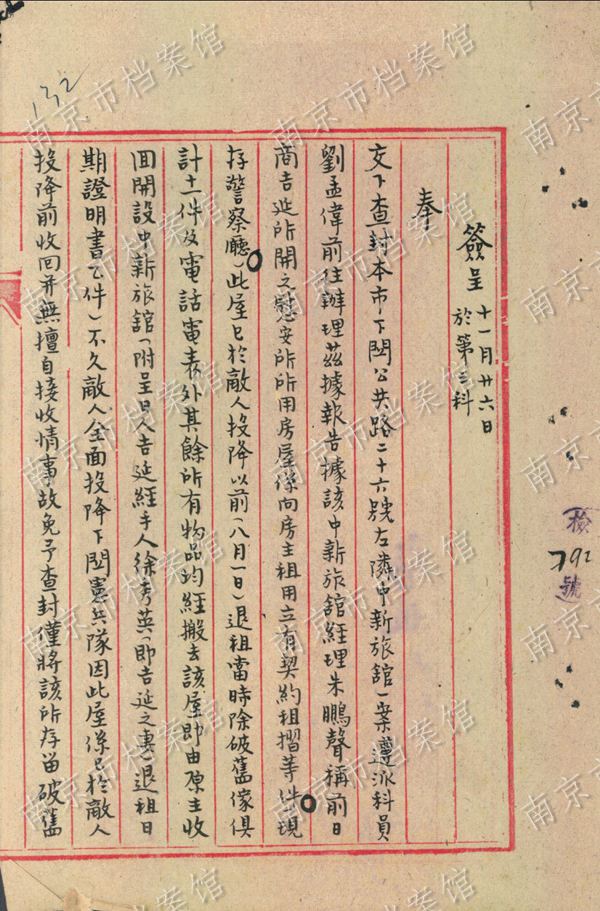 簽呈 十一月廿六日
於第三科
奉
交下查封本市下關公共路二十六號左隣中新旅舘一案遵派科員
劉孟偉前往辦理茲據報告據該中新旅舘經理朱鵬聲稱前日
商吉延所開之慰安所所用房屋係向房主租用立有契約租摺等件(現
存警察廳)此屋已於敵人投降以前(八月一日)退租當時除破舊傢俱
計十一件及電話電表外其餘所有物品均經搬去該屋即由原主收
回開設中新旅舘(附呈日人吉延經手人徐秀英(即吉延之妻)退租日
期證明書乙件)不久敵人全面投降下關憲兵隊因此屋係已於敵人
投降前收回并無擅自接收情事故免予查封僅將該所存留破舊
132
檢
792
號
南京市档案馆